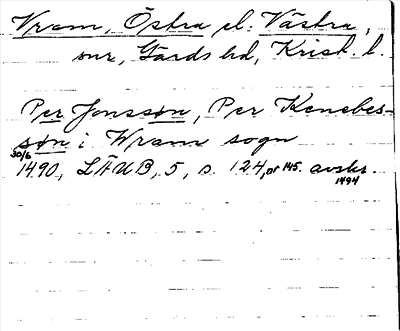 Vram, Östra el. Västra,
snr, Gärds hd, Krist. l.
Per Jonssøn, Per Kenebes-
søn i Wram sogn
30/6
1490, LÄUB, 5, s. 124, or 145. avskr.
1494